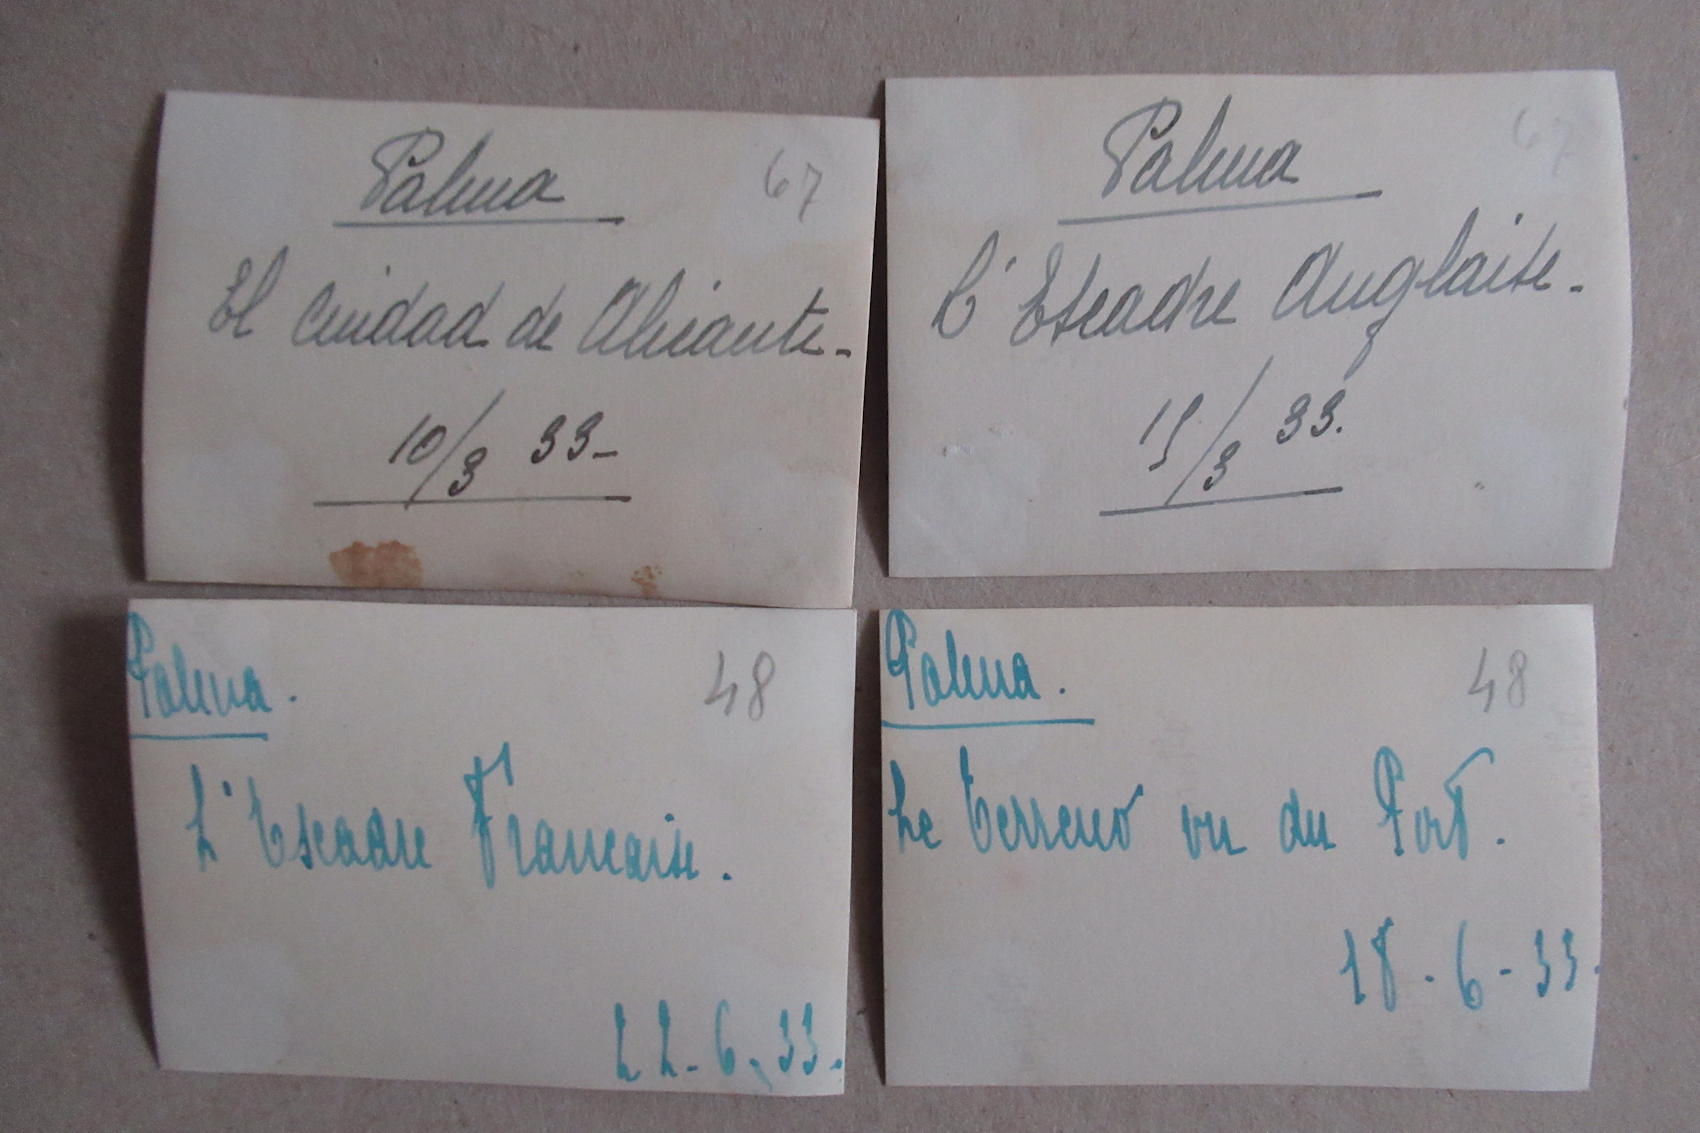 Palma
67
El Ciudad de Alicante.
10/3 33
Palma
67
L'Escadre Anglaise.
15/3 33.
Palma.
48
L'Escadre Francaise.
22-6-33.
Palma.
48
Le Terreno vu du Port.
18-6-33.